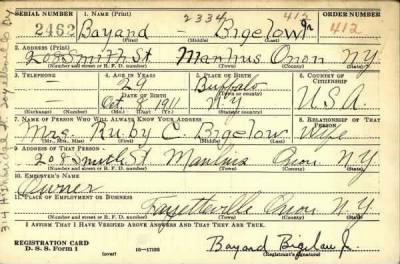 SERIAL NUMBER 1. NAME (Print) ORDER NUMBER
2334 412
2462 Bayard - Bigelow Jr 412
(First) (Middle) (Last)
2. ADDRESS (Print)
208 Smith St. Manlius Onon N.Y.
(Number and street or R. F. D. number) (Town) (County) (State)
3. TELEPHONE 4. AGE IN YEARS 5. PLACE OF BIRTH 6. COUNTRY OF CITIZENSHIP
Buffalo
DATE OF BIRTH (Town or county)
Oct. 8 1911 N.Y U.S.A.
(Exchange) (Number) (Mo.) (Day) (Yr.) (State or country)
7. NAME OF PERSON WHO WILL ALWAYS KNOW YOUR ADDRESS 8. RELATIONSHIP OF THAT PERSON
Mrs. Ruby C. Bigelow Wife
(Mr., Mrs., Miss) (First) (Middle) (Last)
9. ADDRESS OF THAT PERSON
208 Smith St. Manlius Onon N.Y.
(Number and street or R. F. D. number) (Town) (County) (State)
10. EMPLOYER'S NAME
Owner
11. PLACE OF EMPLOYMENT OR BUSINESS
Fayetteville Onon N.Y.
(Number and street or R. F. D. number) (Town) (County) (State)
I AFFIRM THAT I HAVE VERIFIED ABOVE ANSWERS AND THAT THEY ARE TRUE.
REGISTRATION CARD
D. S. S. Form 1 (over) 16-17105 Bayard Bigelow Jr.
(Registrant's signature)